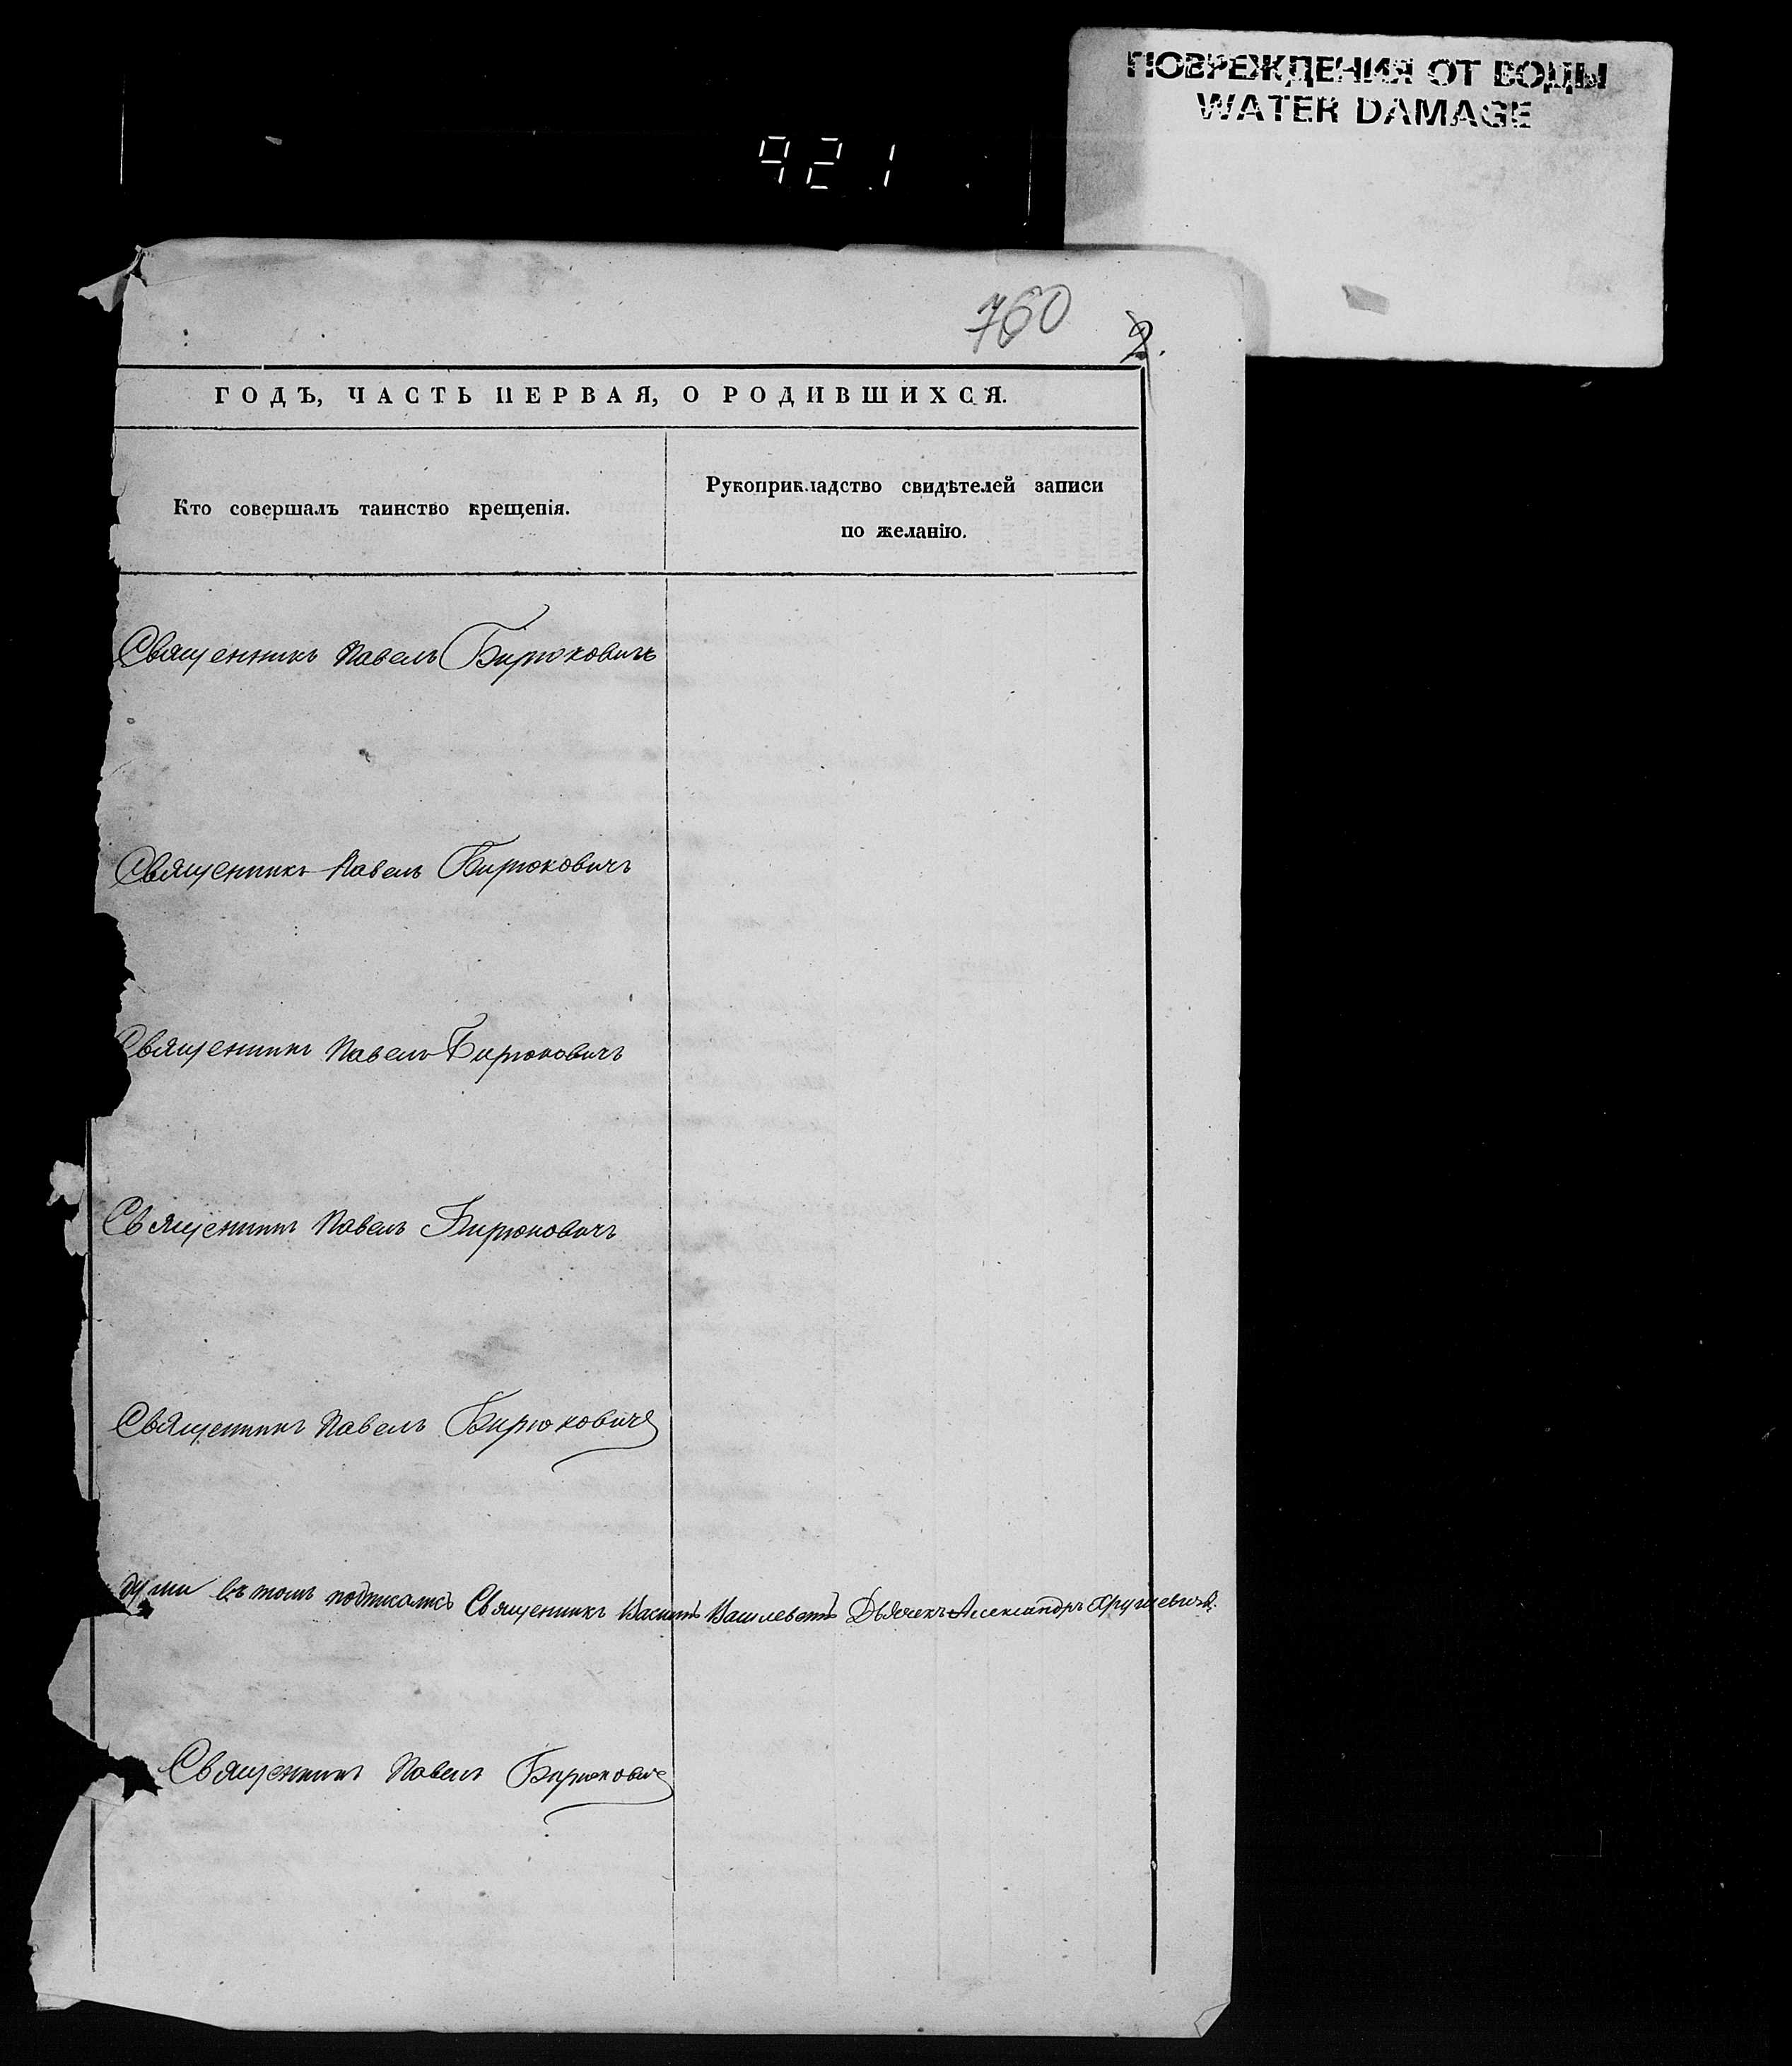 ПОВРЕЖДЕНИЯ ОТ ВОДЫ
WATER DAMAGE
921
760
2.
ГОДЪ, ЧАСТЬ ПЕРВАЯ, О РОДИВШИХСЯ.
Кто совершалъ таинство крещенія.
Рукоприкладство свидѣтелей записи
по желанію.
Священникъ Павелъ Бирюковичъ
Священникъ Павелъ Бирюковичъ
Священникъ Павелъ Бирюковичъ
Священникъ Павелъ Бирюковичъ
Священникъ Павелъ Бирюковичъ
въ томъ подписались Священникъ Дьячекъ Александръ
Священникъ Павелъ Бирюковичъ